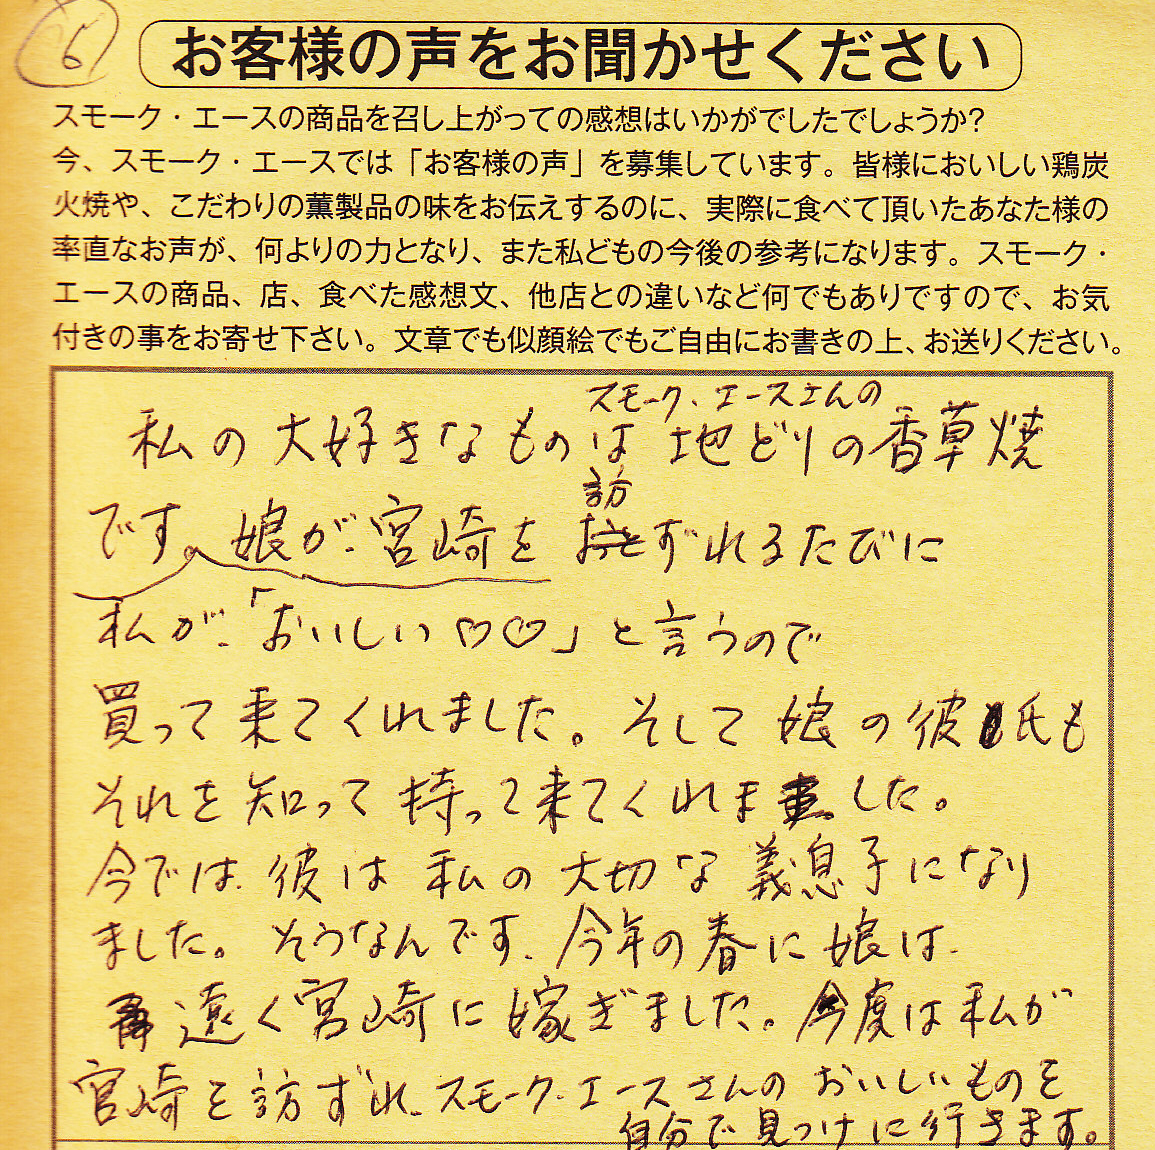 6
お客様の声をお聞かせください
スモーク・エースの商品を召し上がっての感想はいかがでしたでしょうか?
今、スモーク・エースでは「お客様の声」を募集しています。皆様においしい鶏炭
火焼や、こだわりの薫製品の味をお伝えするのに、実際に食べて頂いたあなた様の
率直なお声が、何よりの力となり、また私どもの今後の参考になります。スモーク・
エースの商品、店、食べた感想文、他店との違いなど何でもありですので、お気
付きの事をお寄せ下さい。文章でも似顔絵でもご自由にお書きの上、お送りください。
スモーク・エースさんの
私の大好きなものは地どりの香草焼
です。娘が、宮崎を訪ずれるたびに
私が、「おいしい♡♡」と言うので
買って来てくれました。そして娘の彼氏も
それを知って持って来てくれました。
今では、彼は私の大切な義息子になり
ました。そうなんです、今年の春に娘は、
遠く宮崎に嫁ぎました。今度は私が
宮崎を訪ずれ、スモーク・エースさんのおいしいものを
自分で見つけに行きます。